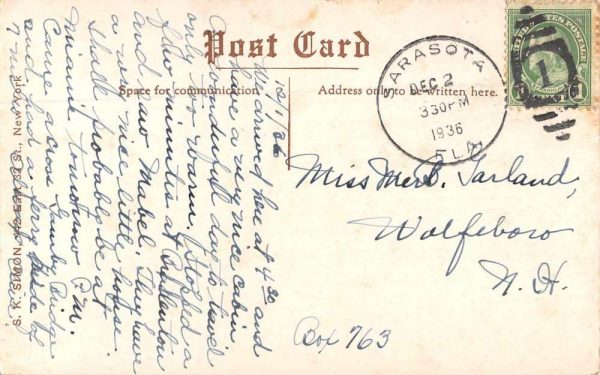 Post Card
Space for communication
Address only to be written here.
SARASOTA
DEC 2
330PM
1936
FLA
U.S. POSTAGE
1
12/1/36
We arrived here at 4 30 and
have a very nice cabin.
A wonderful day to travel
only too warm. Stopped a
few minutes at
and saw Mabel. They have
a very nice little house.
Shall probably be at
Miami tomorrow P.M.
Came across Gandy Bridge
and had a ferry ride of
7
Miss Mer B. Garland,
Wolfeboro
N. H.
Box 763
S. K. SIMON, 32 St., New York